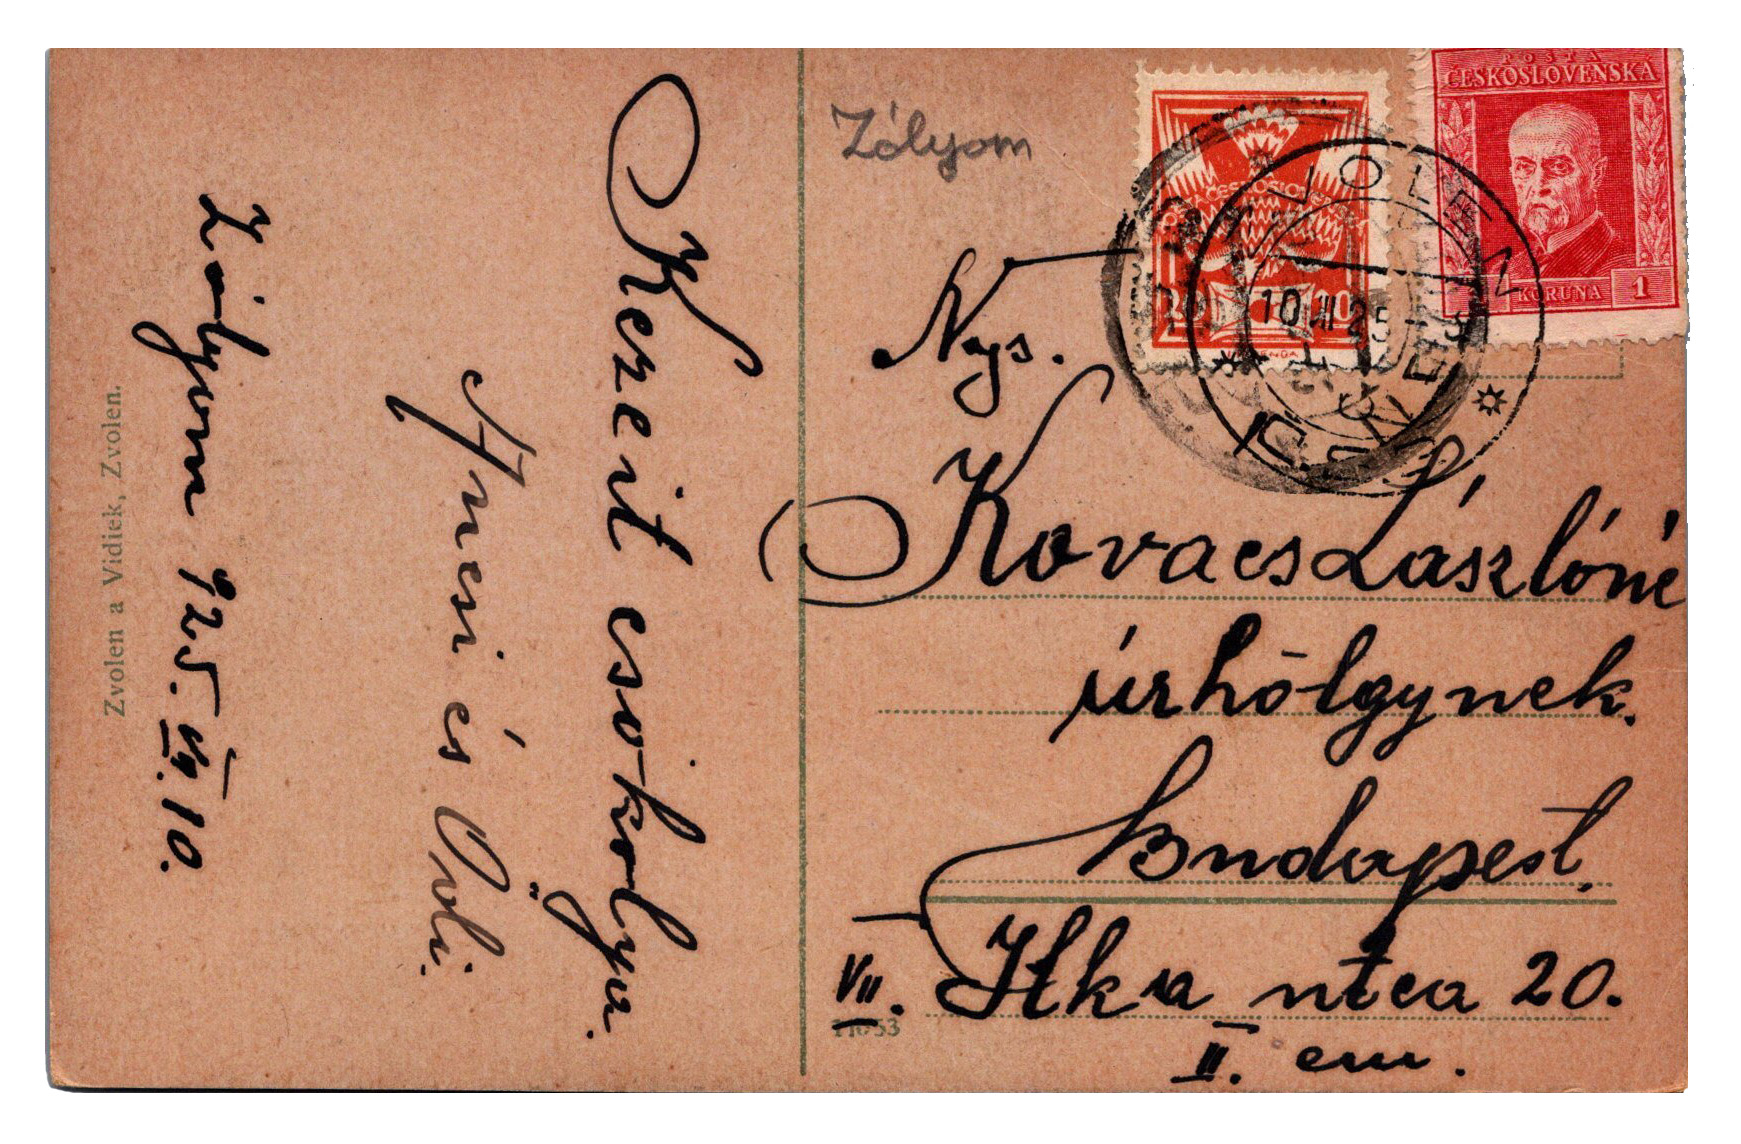 Kezeit csókolya
Ancsi és Ödi.
Zólyom 925. VII. 10.
Zvolen a Vidiek, Zvolen.
Zólyom
POSTA
ČESKOSLOVENSKÁ
KORUNA 1
20
ZVOLEN
10 VII 25
Ngs.
Kovács Lászlóné
úrhölgynek.
Budapest.
VII. Ilka utca 20.
II. em.